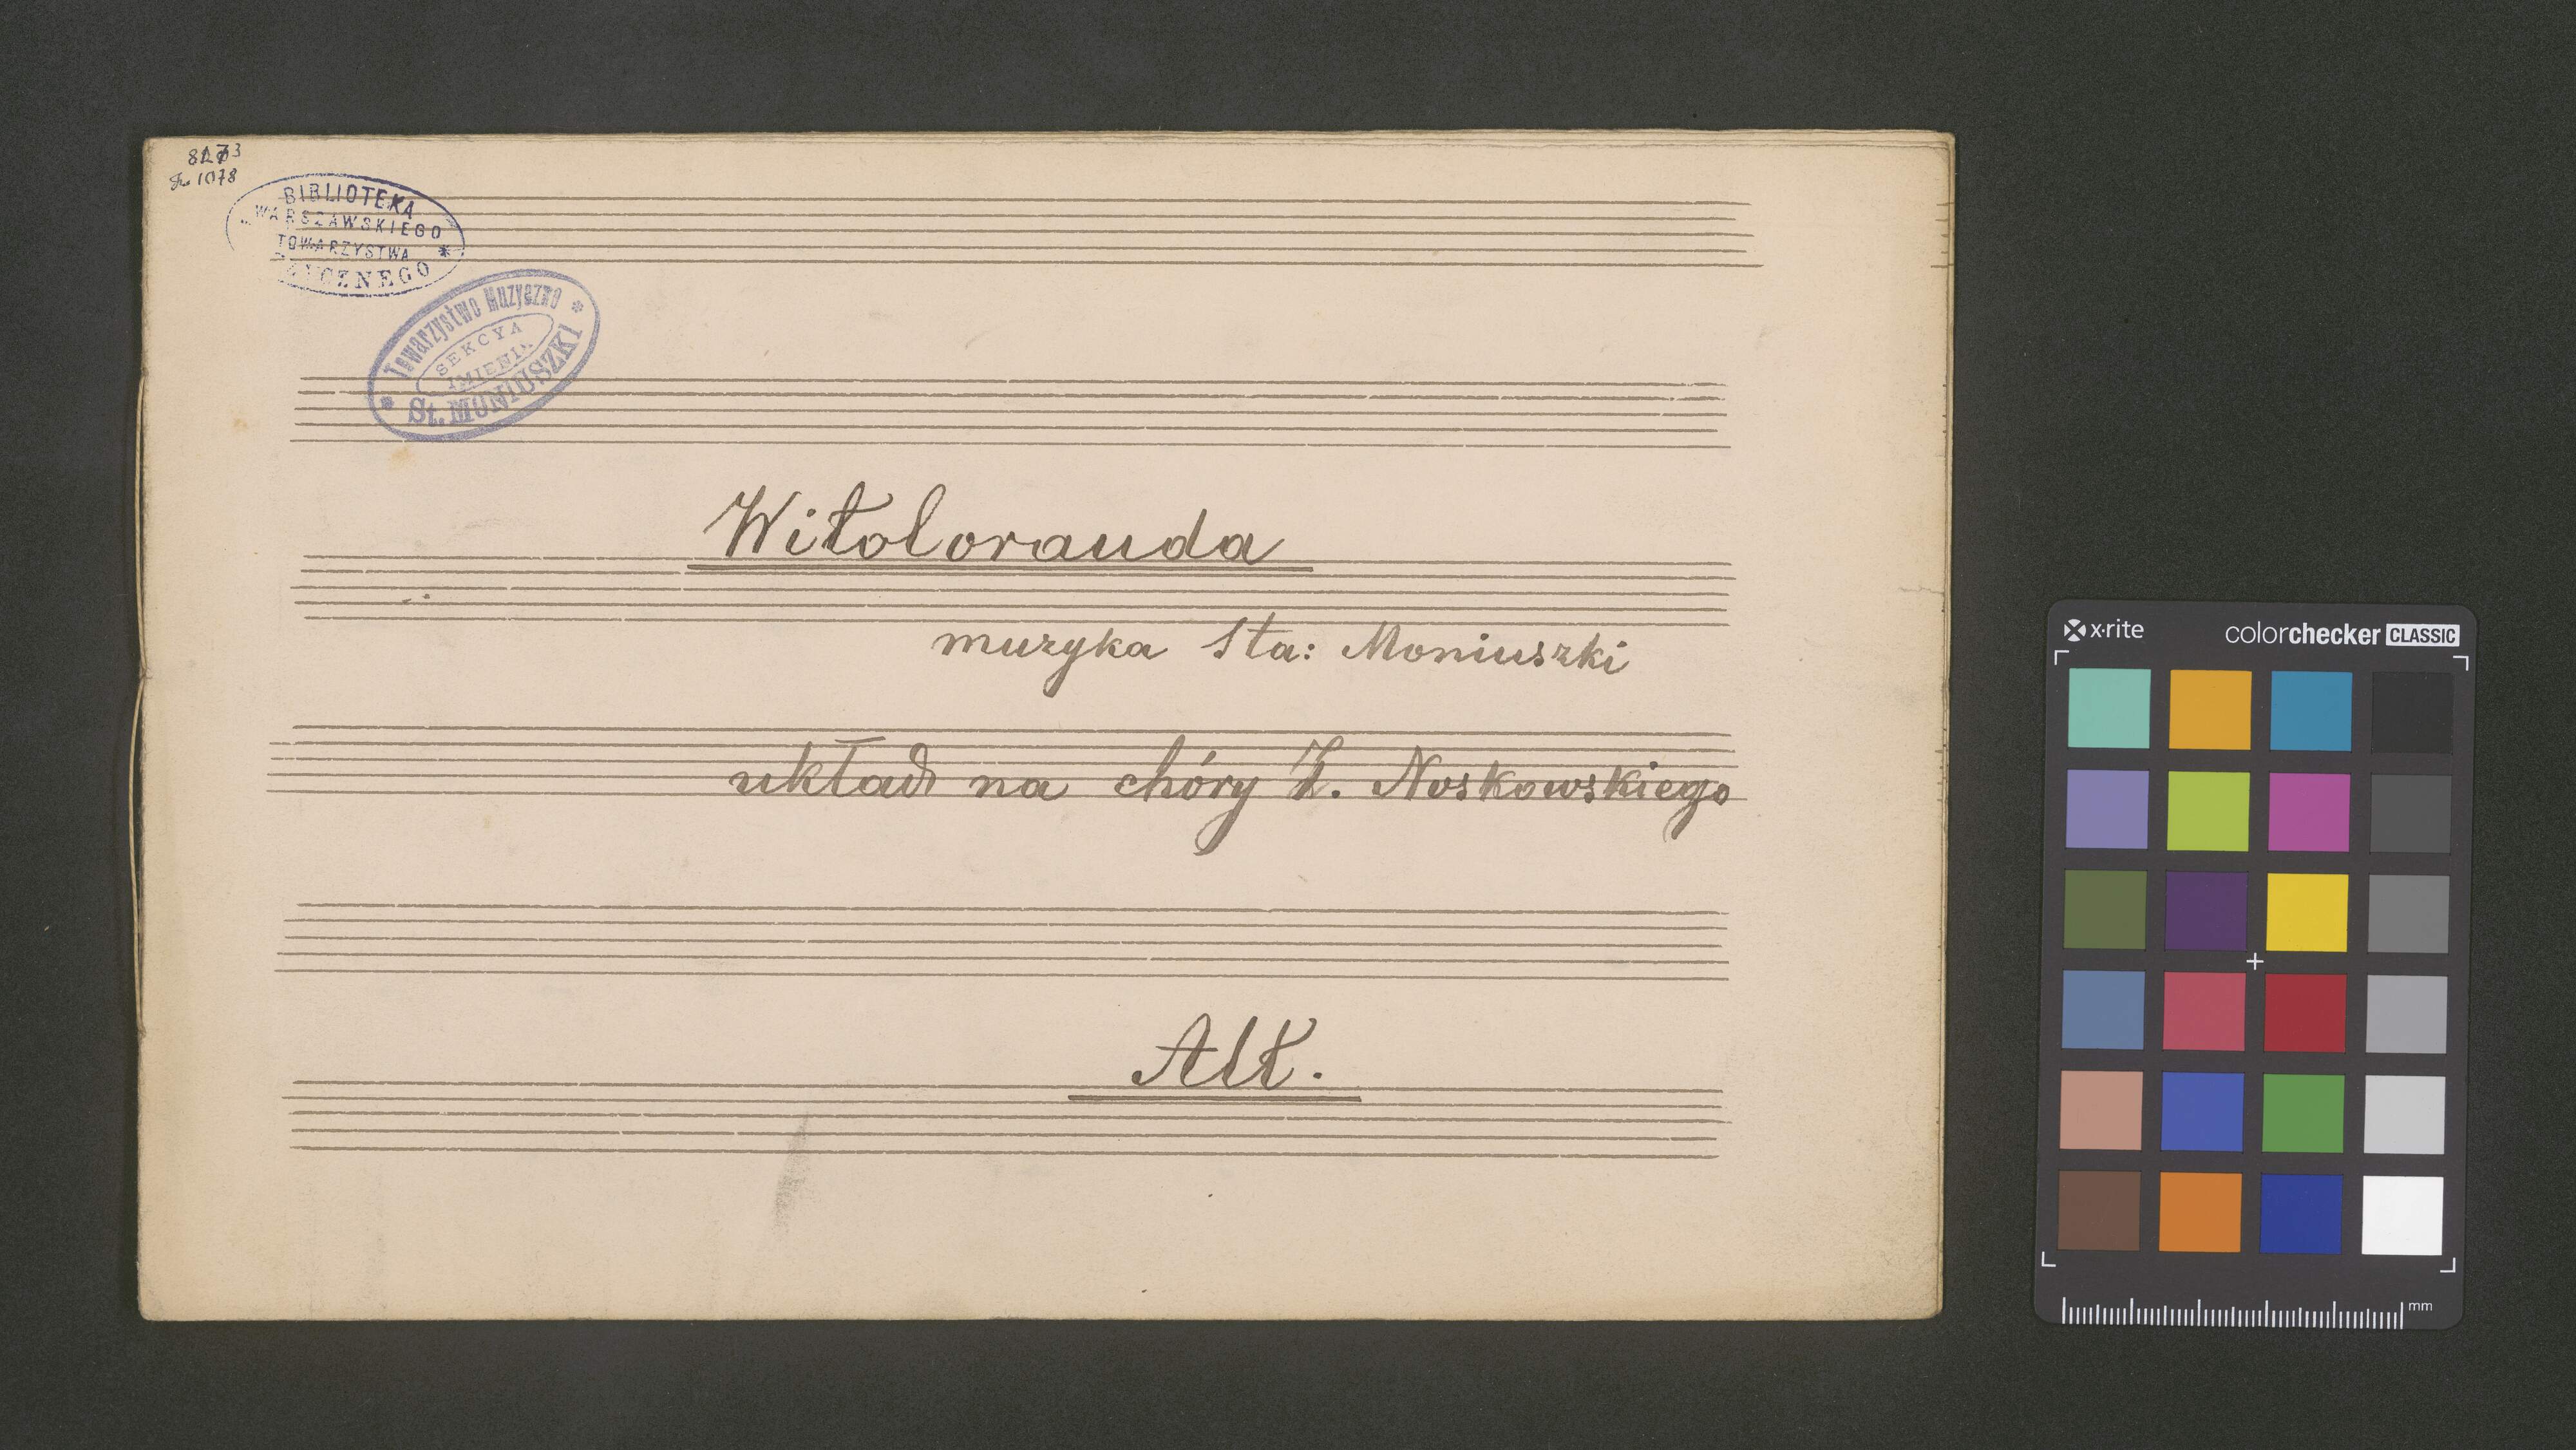 Fu 1078
BIBLIOTEKA
WARSZAWSKIEGO
TOWARZYSTWA
YCZNEGO
Towarzystwo Muzyczne
SEKCYA
IMIENIA
St. MONIUSZKI
Witolorauda
muzyka Sta: Moniuszki
układ na chóry Z. Noskowskiego
Alt.
x·rite colorchecker CLASSIC
mm